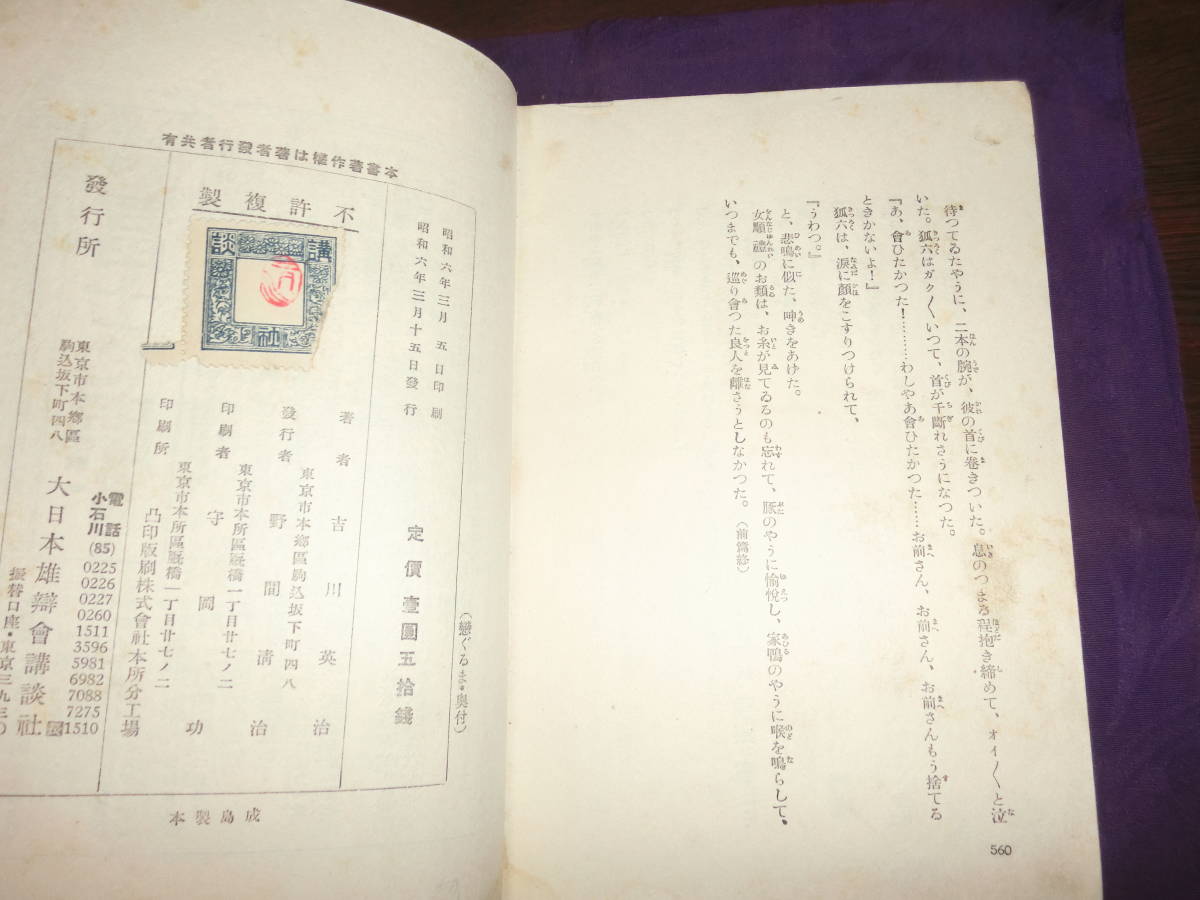 待つてゐたやうに、二本の腕が、彼の首に巻きついた。息のつまる程抱き締めて、オイ〳〵と泣
いた。狐六はガク〳〵いつて、首が千斷れさうになつた。
『あ、會ひたかつた！………わしやあ會ひたかつた……お前さん、お前さん、お前さんもう捨てる
ときかないよ！』
狐六は、涙に顔をこすりつけられて、
『うわつ。』
と、悲鳴に似た、呻きをあげた。
女順禮のお類は、お糸が見てゐるのも忘れて、豚のやうに愉悅し、家鴨のやうに喉を鳴らして、
いつまでも、巡り會つた良人を離さうとしなかつた。（前篇終）
560
本書著作權は著者發行者共有
（戀ぐるま・奥付）
定價壹圓五拾錢
昭和六年三月五日印刷
昭和六年三月十五日發行
不許複製
講談社
著者 吉川英治
東京市本鄕區駒込坂下町四八
發行者 野間淸治
東京市本所區厩橋一丁目廿七ノ二
印刷者 守岡功
東京市本所區厩橋一丁目廿七ノ二
印刷所 凸版印刷株式會社本所分工場
發行所
東京市本鄕區
駒込坂下町四八
大日本雄辯會講談社
電話
小石川
(85)
0225
0226
0227
0260
1511
3596
5981
6982
7088
7275
1510
振替口座・東京三九三〇
成島製本